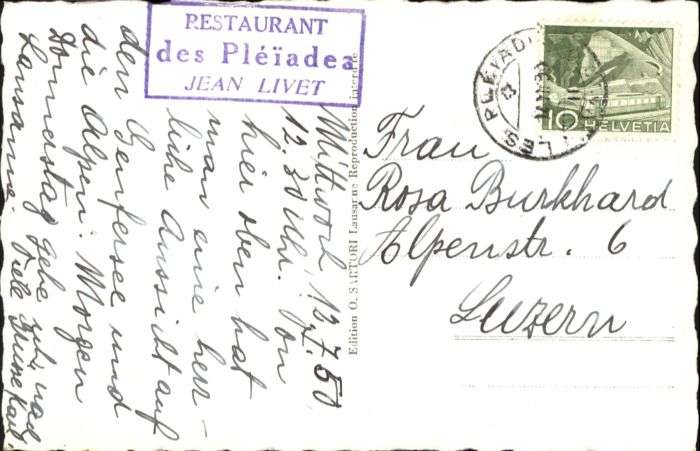 RESTAURANT
des Pléïades
JEAN LIVET
LES PLÉIADES
10
HELVETIA
Mittwoch 12.7.50
12.30 Uhr. Von
hier oben hat
man eine herr-
liche Aussicht auf
den Genfersee und
die Alpen. Morgen
Donnerstag gehe
Lausanne. Viele Grüsse
Edition O. SARTORI Lausanne Reproduction interdite
Frau
Rosa Burkhard
Alpenstr. 6
Luzern